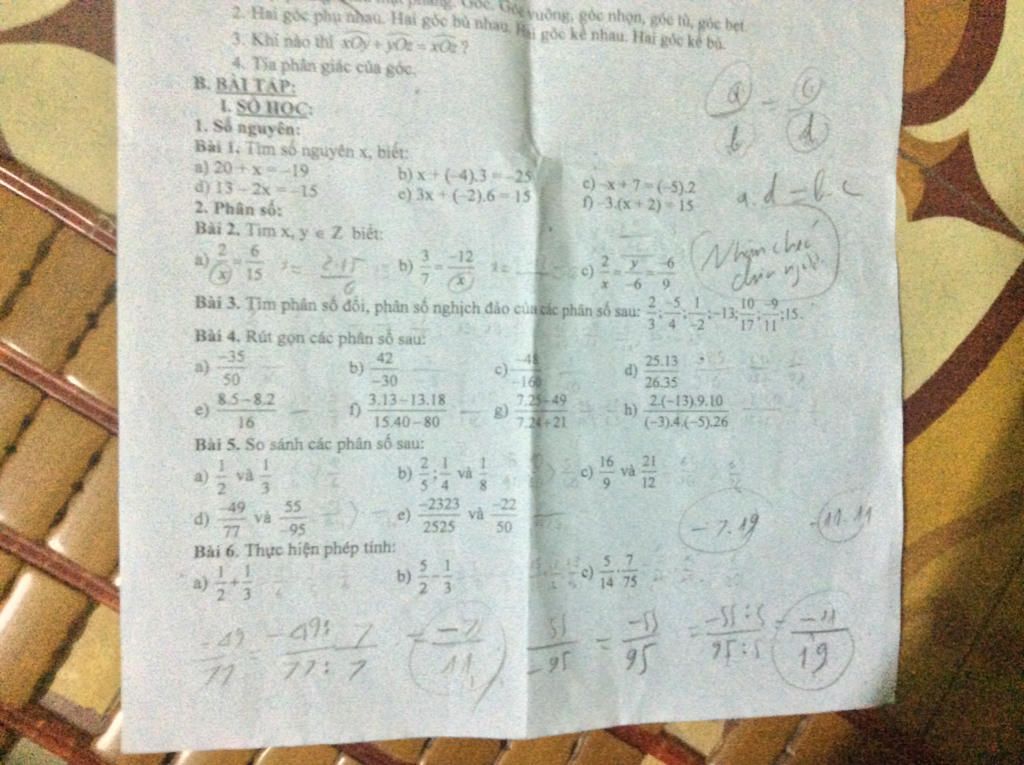 2. Hai góc phụ nhau. Hai góc bù nhau. Hai góc kề nhau. Hai góc kề bù.
3. Khi nào thì xOy + yOz = xOz ?
4. Tia phân giác của góc.
B. BÀI TẬP:
I. SỐ HỌC:
1. Số nguyên:
Bài 1. Tìm số nguyên x, biết:
a) 20 + x = -19 b) x + (-4).3 = -25 c) -x + 7 = (-5).2
d) 13 - 2x = -15 e) 3x + (-2).6 = 15 f) -3.(x + 2) = 15
2. Phân số:
Bài 2. Tìm x, y ∈ Z biết:
a) 2/x = 6/15 b) 3/7 = -12/x c) 2/x = y/-6 = -6/9
Bài 3. Tìm phân số đối, phân số nghịch đảo của các phân số sau: 2/3; -5/4; 1/-2; -13; 10/17; -9/11; 15.
Bài 4. Rút gọn các phân số sau:
a) -35/50 b) 42/-30 c) -48/-160 d) 25.13/26.35
e) 8.5-8.2/16 f) 3.13-13.18/15.40-80 g) 7.25-49/7.24+21 h) 2.(-13).9.10/(-3).4.(-5).26
Bài 5. So sánh các phân số sau:
a) 1/2 và 1/3 b) 2/5; 1/4 và 1/8 c) 16/9 và 21/12
d) -49/77 và 55/-95 e) -2323/2525 và -22/50
Bài 6. Thực hiện phép tính:
a) 1/2 + 1/3 b) 5/2 - 1/3 c) 5/14 . 7/75
a/b = c/d
a.d = b.c
Nhân chéo
chia ngang
-7.19 -11.11
-49/77 = -49:7/77:7 = -7/11 55/-95 = -55/95 = -55:5/95:5 = -11/19